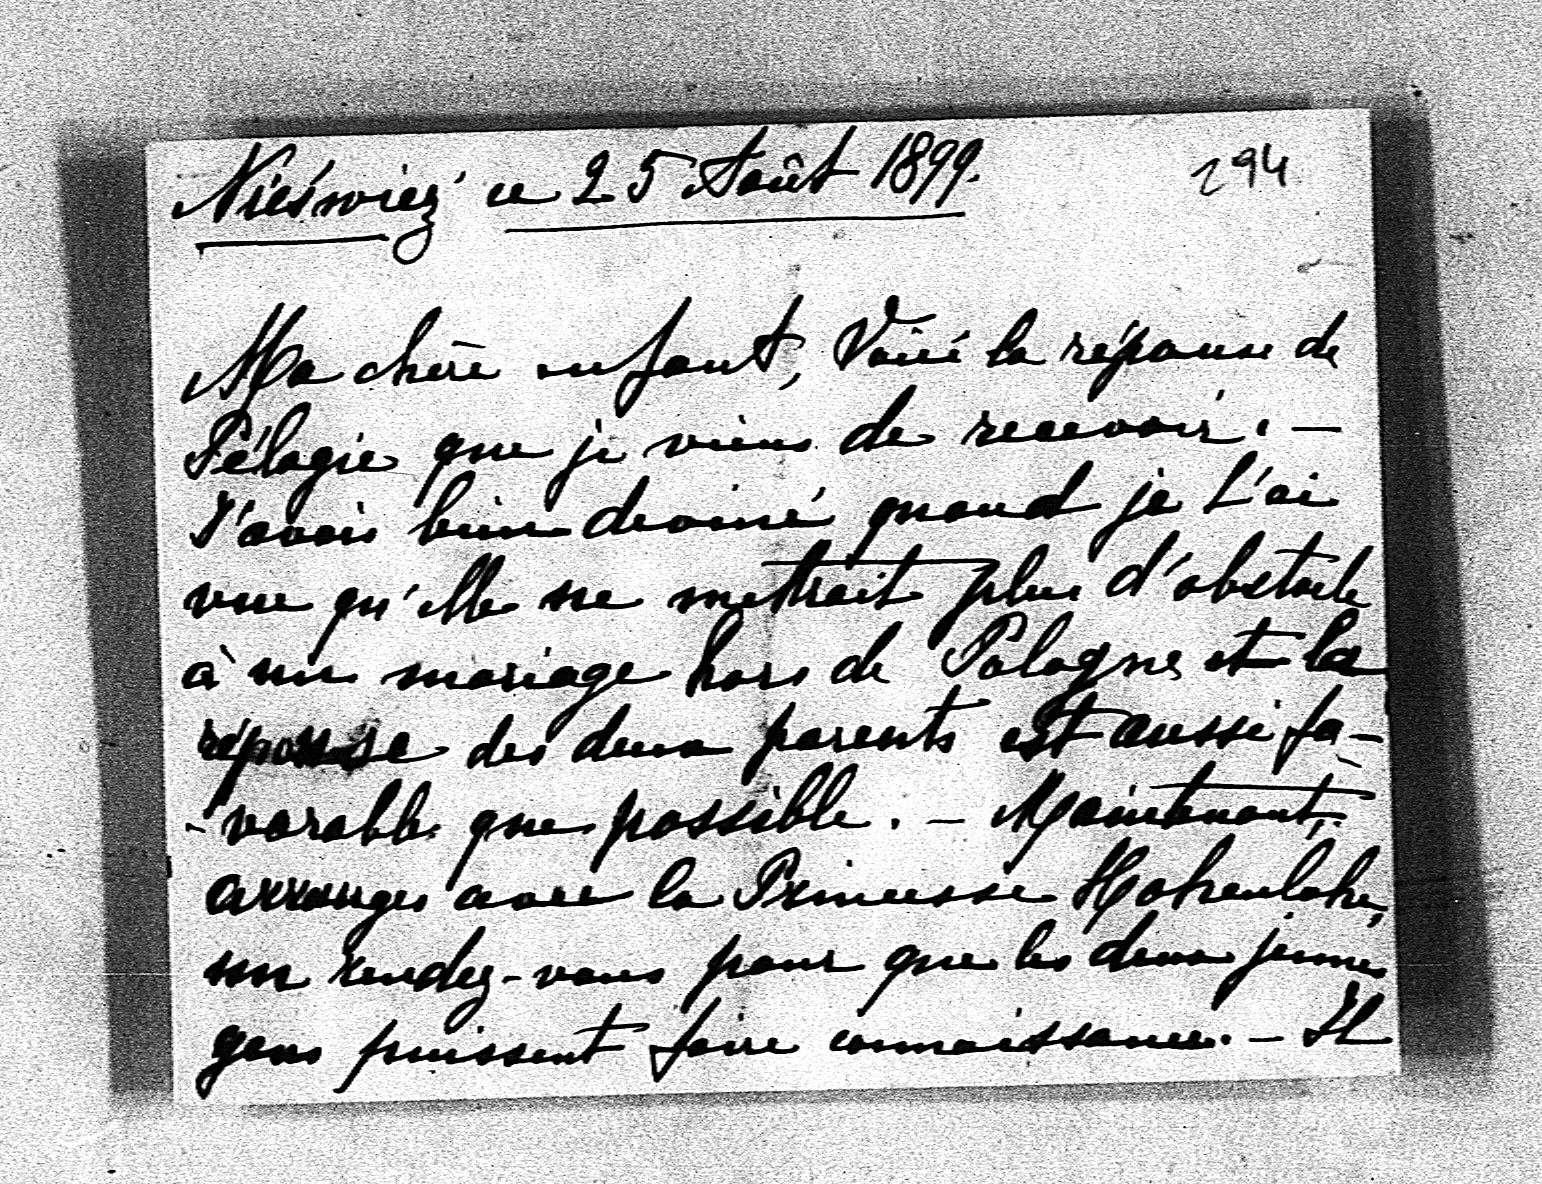 Nieświez' ce 25 Août 1899.
294
Ma chère enfant, Voici la réponse de
Pélagie que je viens de recevoir. —
J'avais bien deviné quand je l'ai
vue qu'elle ne mettrait plus d'obstacle
à un mariage hors de Pologne et la
réponse des deux parents est aussi fa-
-vorable que possible. — Maintenant,
arranges avec la Princesse Hohenlohe,
un rendez-vous pour que les deux jeunes
gens puissent faire connaissance. — Il